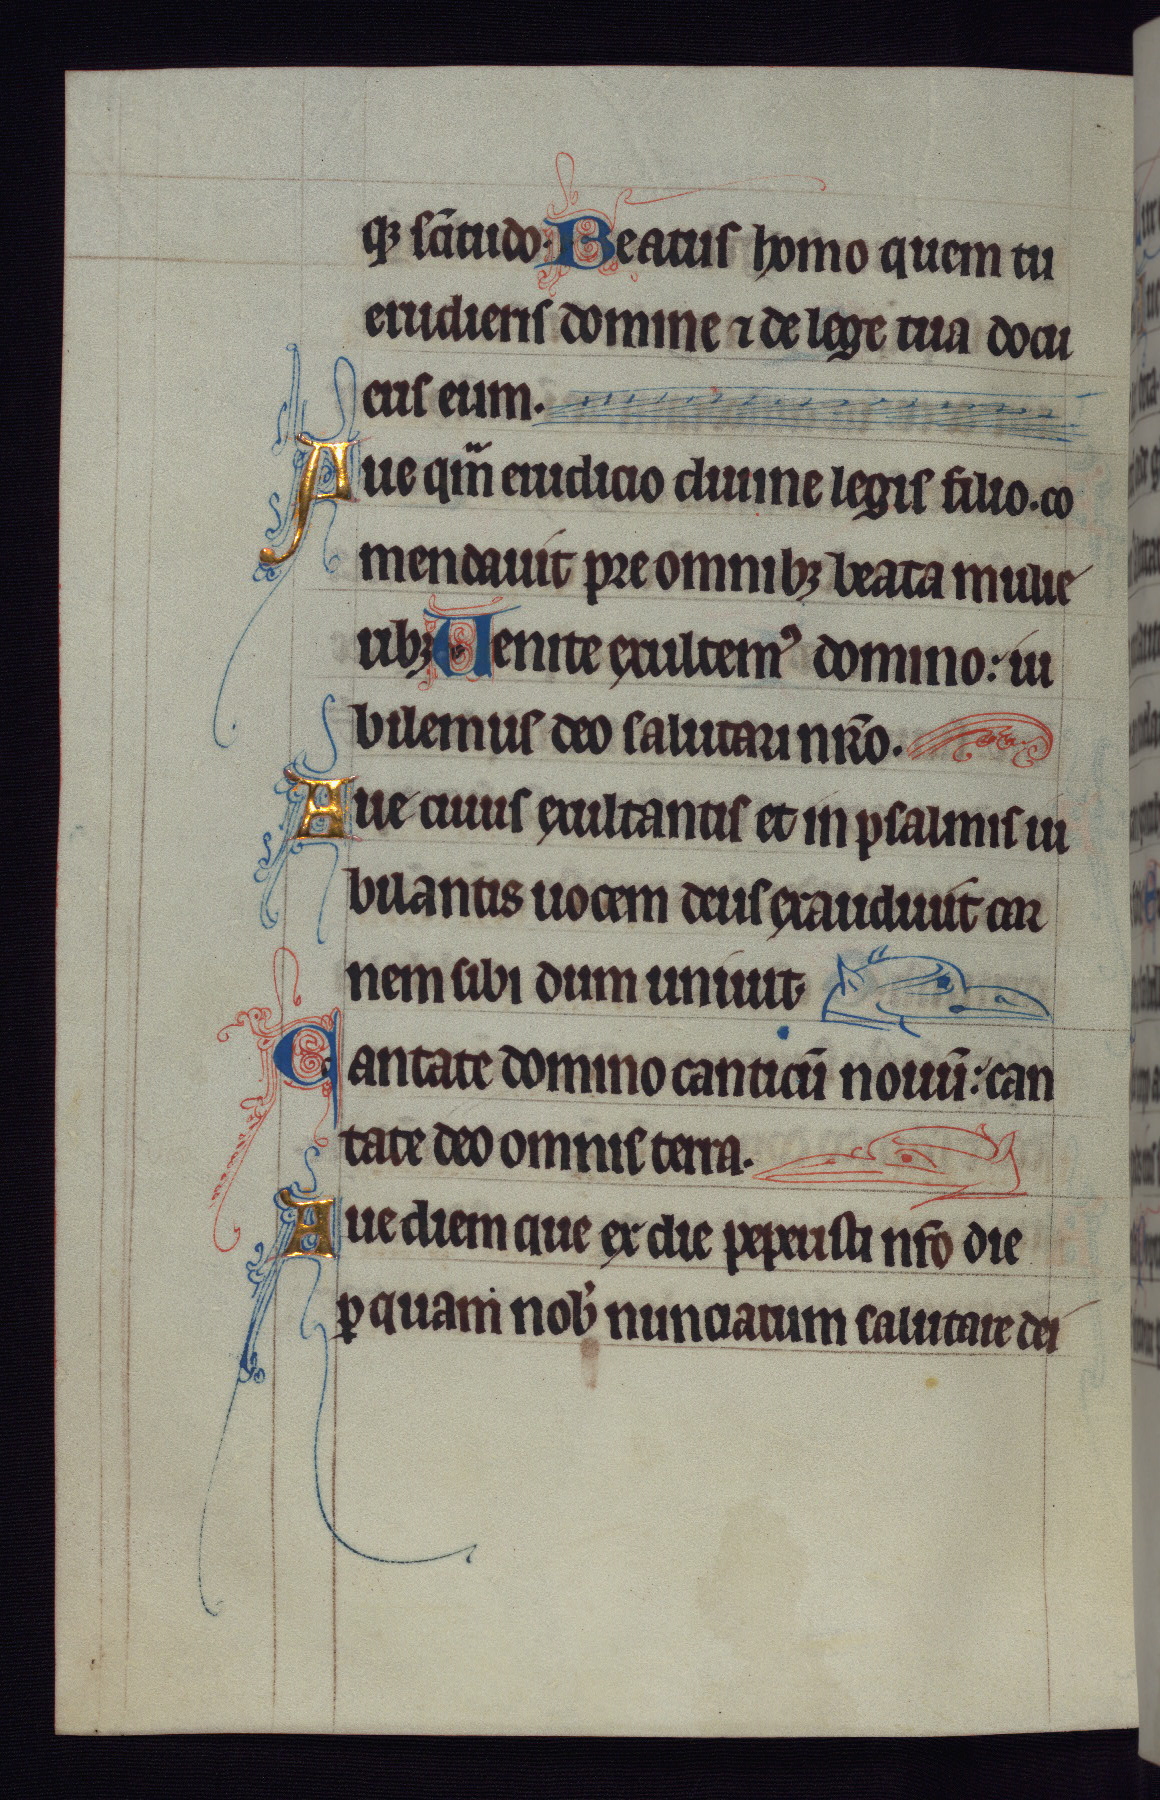 qꝫ sc̄tudo. Beatus homo quem tu
erudieris domine ⁊ de lege tua docu
eris eum.
Aue qm̄ erudicio diuine legis filio. co
mendauit pre omnibꝫ beata mulie
ribꝫ. Uenite exultemꝰ domino: iu
bilemus deo salutari nr̄o.
Aue cuius exultantis et in psalmis iu
bilantis uocem deus exaudiuit car
nem sibi dum uniuit.
Cantate domino canticū nouū: can
tate deo omnis terra.
Aue diem que ex die peperisti nr̄o die
ꝑ quam nob̾ nunciatum salutare dei